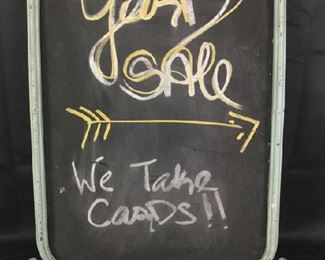 Yard
SALE
We Take
CARDS!!